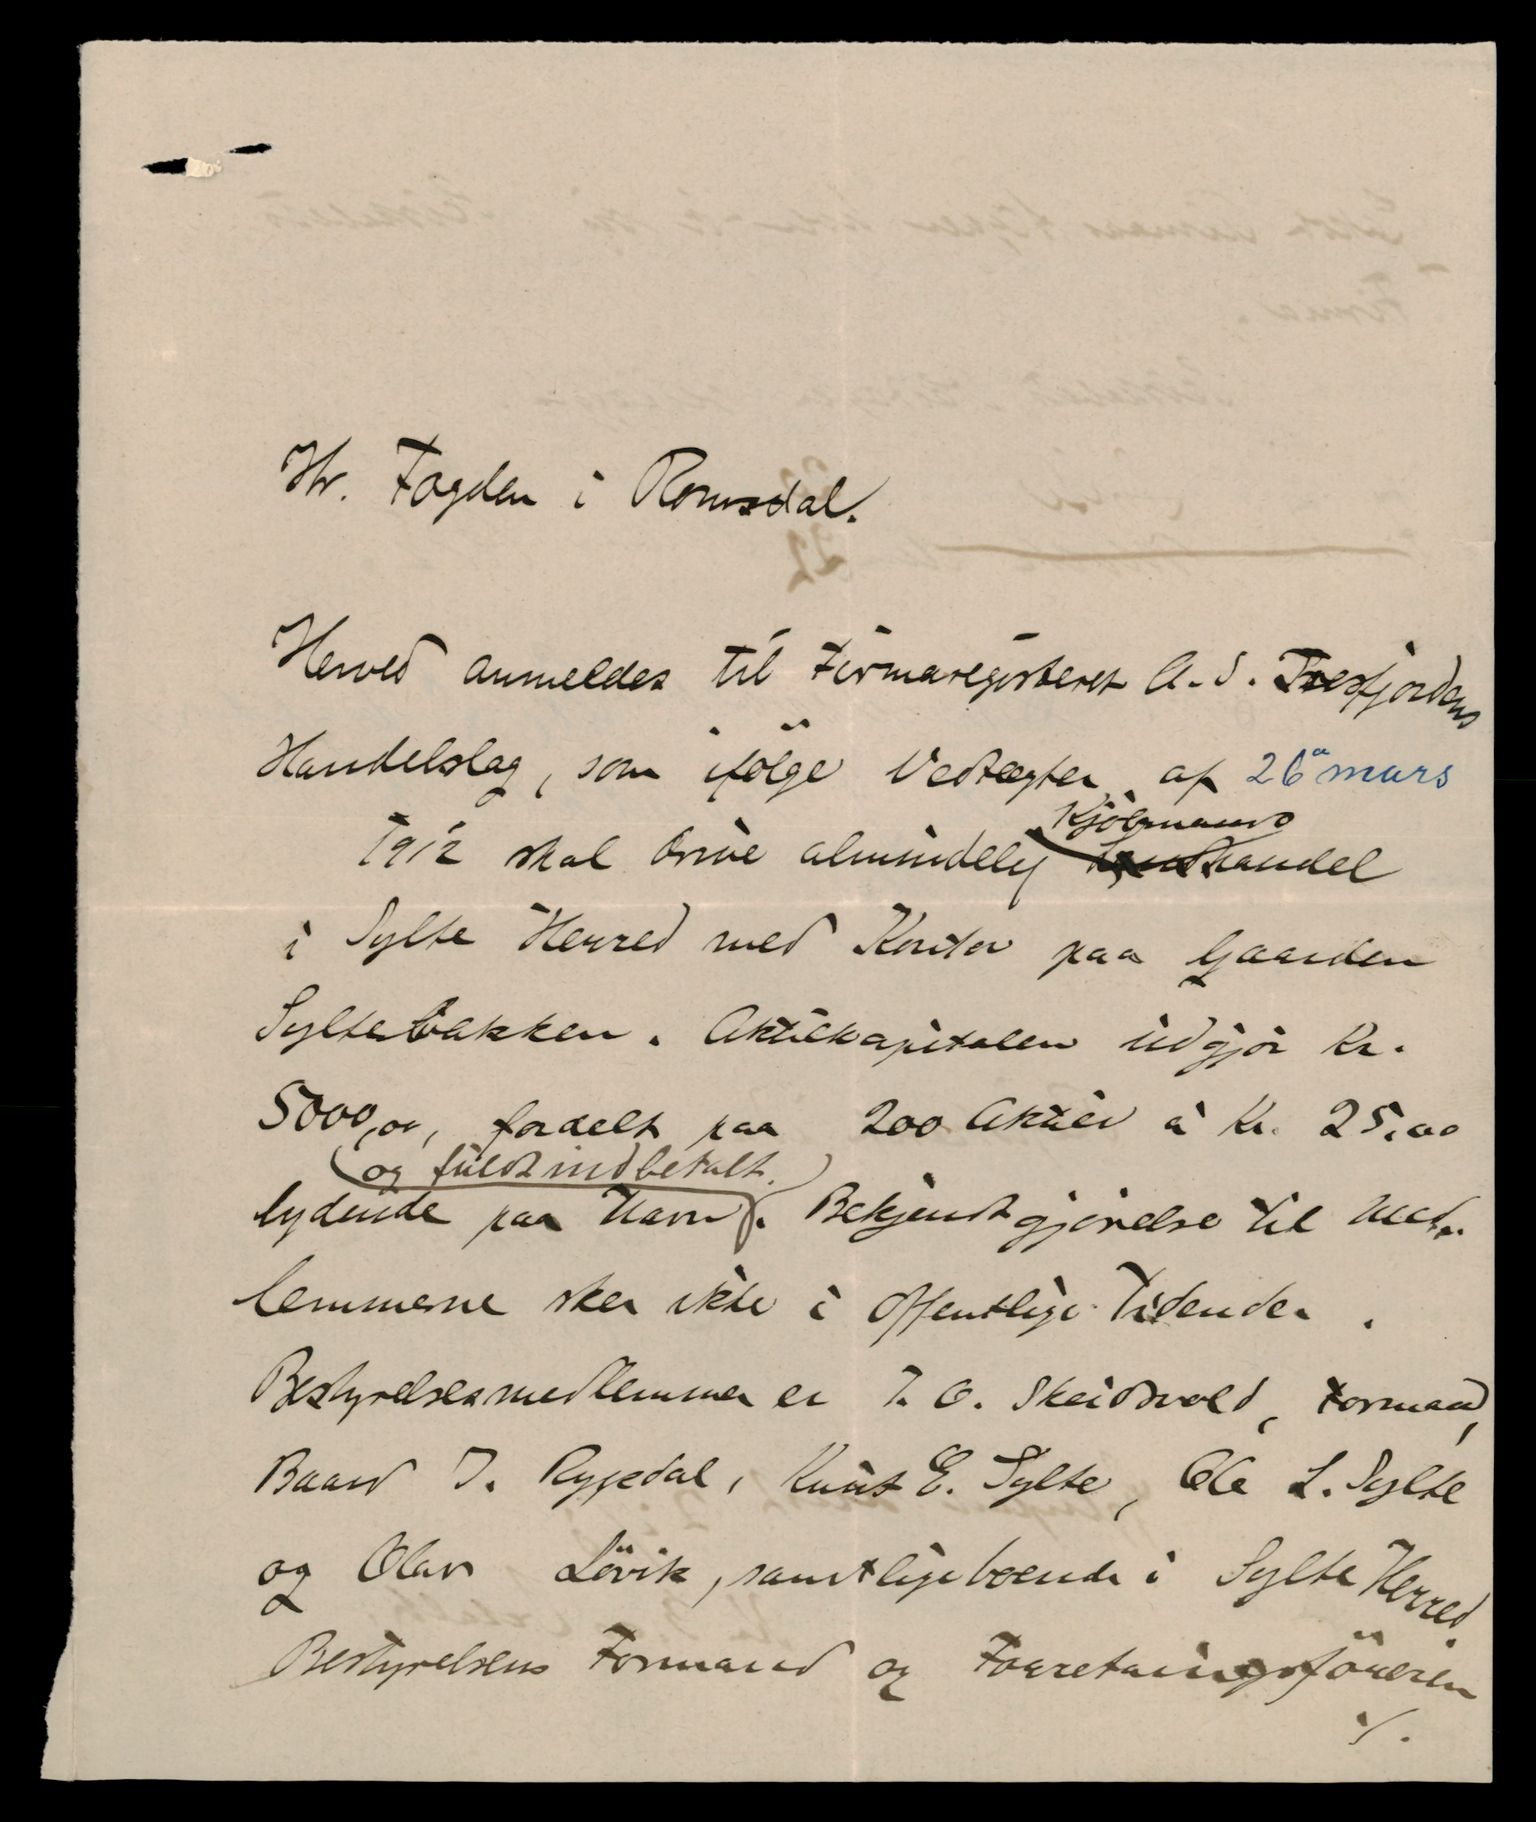 Hr. Fogden i Romsdal.
Herved anmeldes til Firmaregisteret A.S. Tresfjordens
Handelslag, som ifølge Vedtægter af 26a mars
Kjöbmands
1912 skal drive almindelig Landhandel
i Sylte Herred med Kontor paa Gaarden
Syltebakken. Aktiekapitalen udgjör Kr.
5000,00, fordelt paa 200 Aktier á Kr. 25.00
og fuldt indbetalt.
lydende paa Navn. Bekjendtgjörelse til Med-
lemmerne sker ikke i offentlige Tidender.
Bestyrelsesmedlemmer er T. O. Skeidsvold, Formand,
Baard J. Rypdal, Knut E. Sylte, Ole L. Sylte
og Olav Lövik, samtlige boende i Sylte Herred.
Bestyrelsens Formand og Forretningsföreren
./.